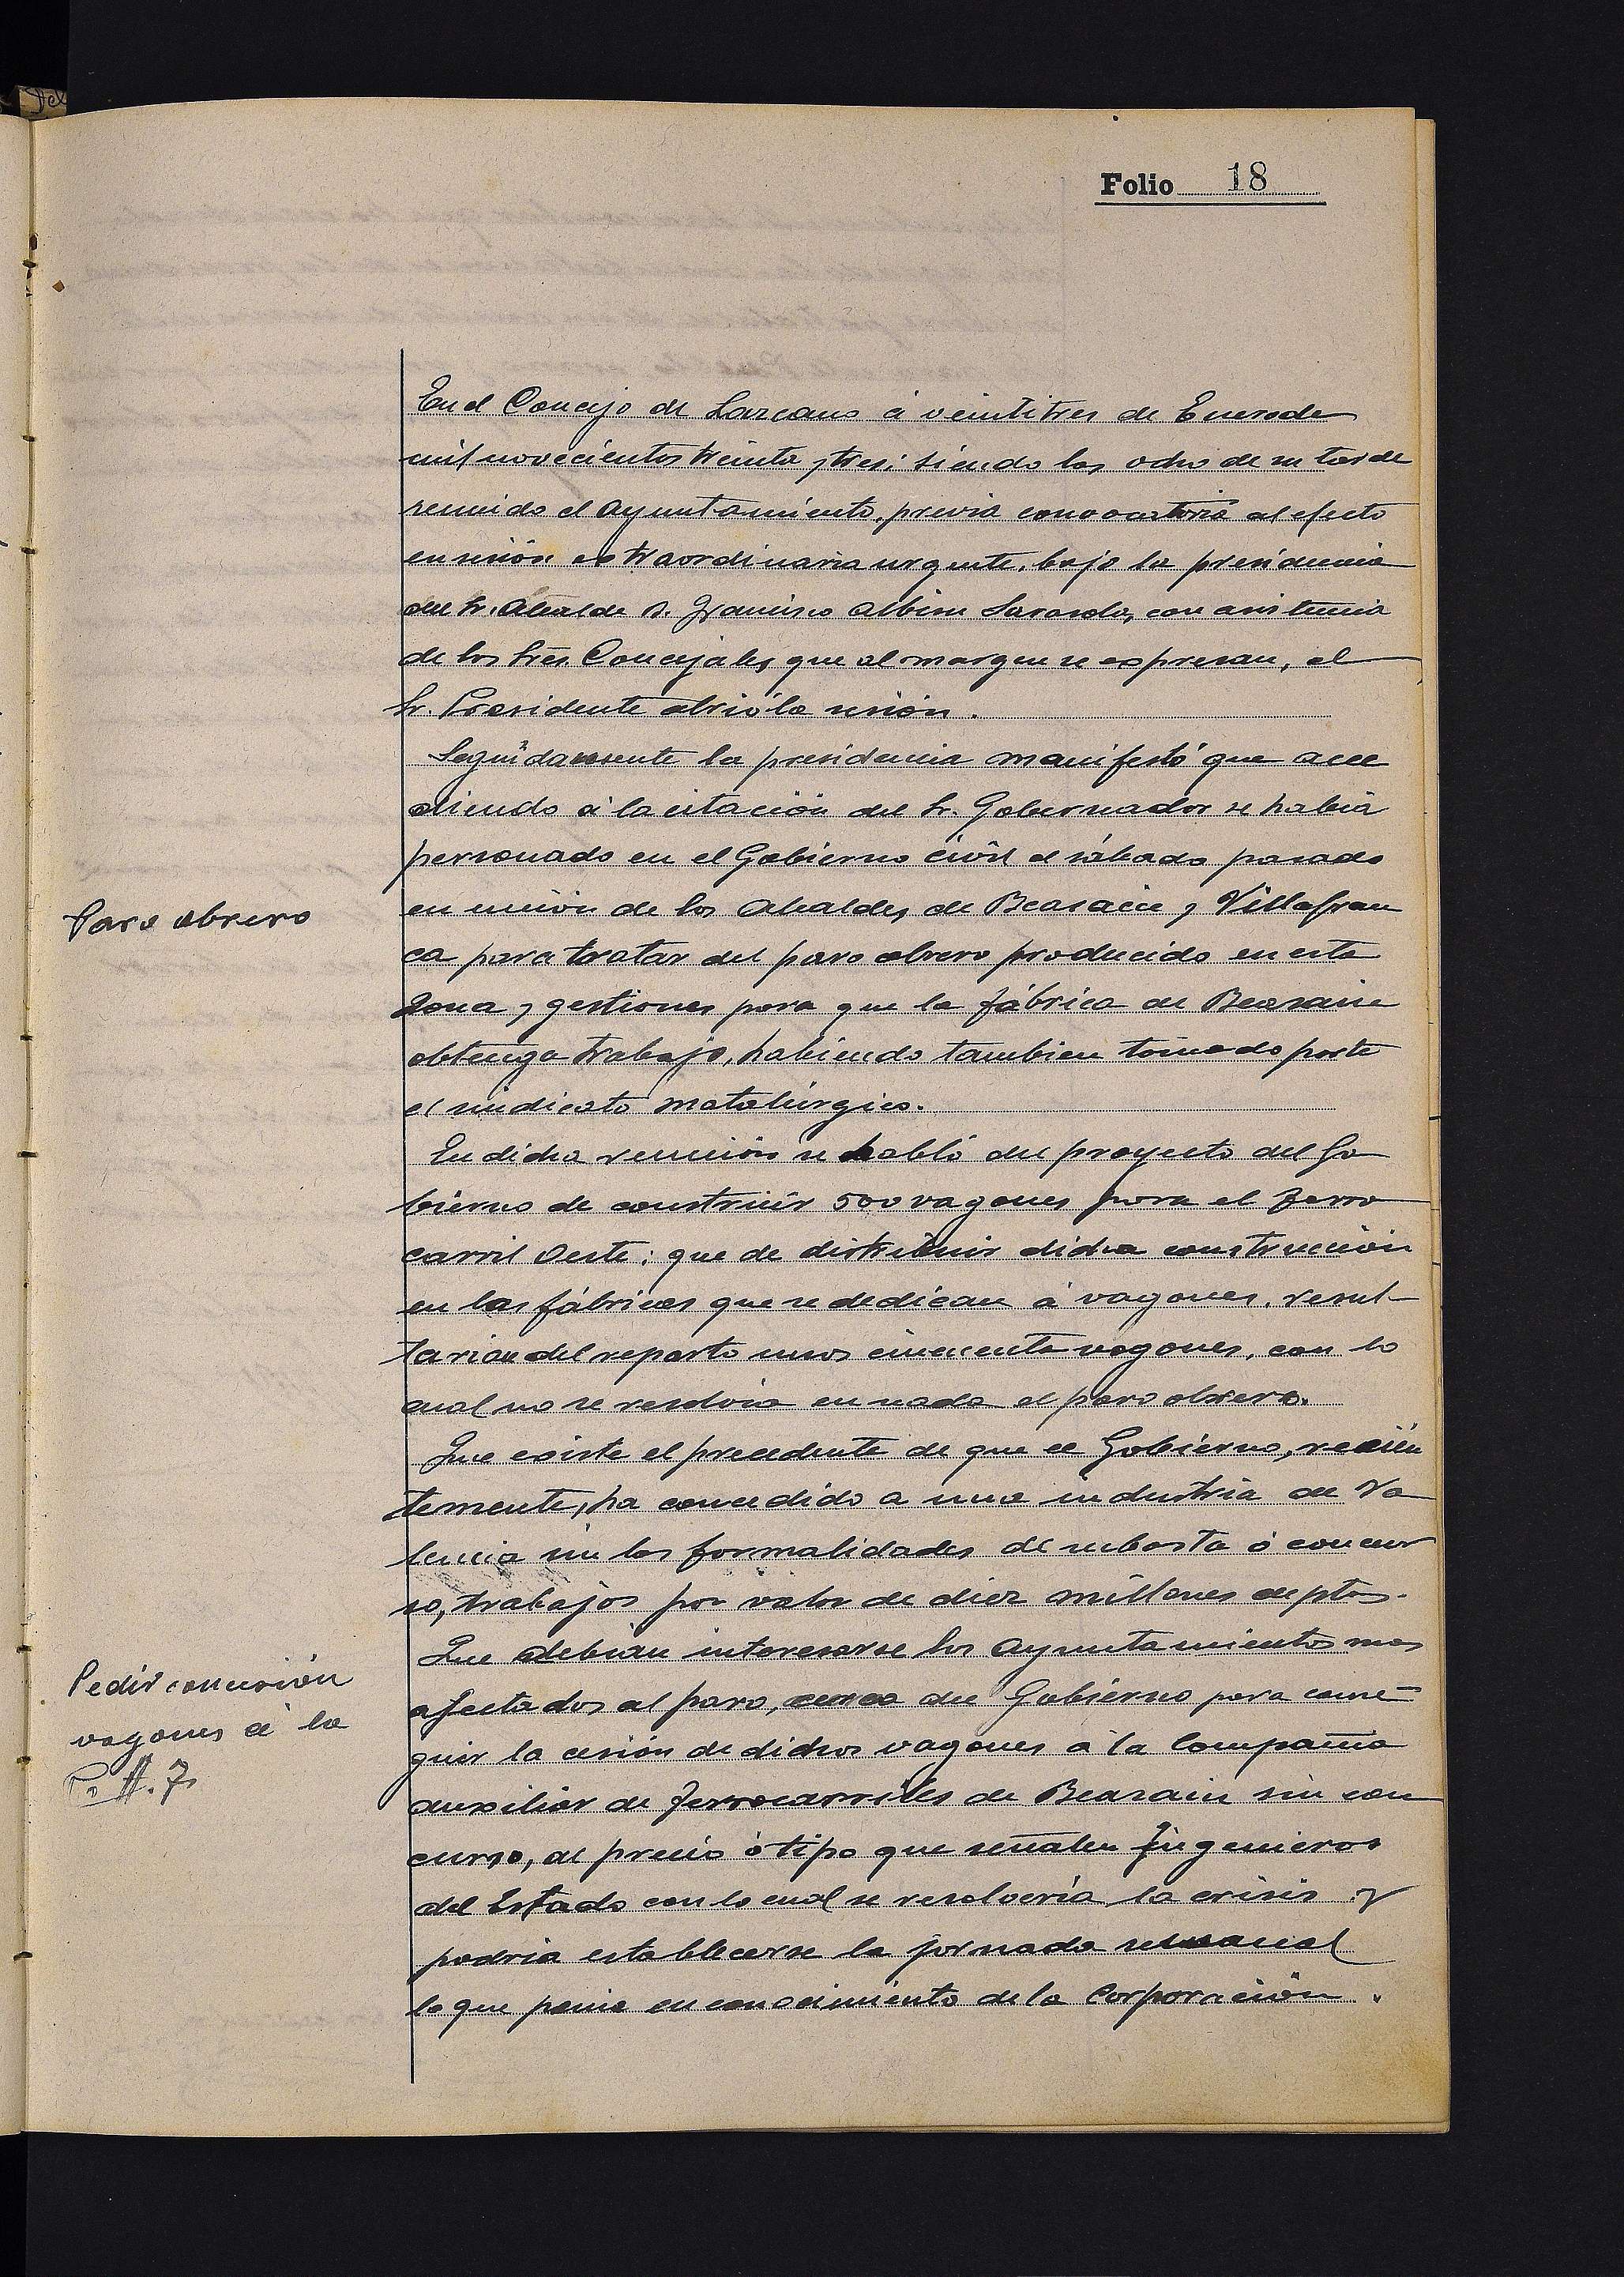 Folio 18
En el Concejo de Lazcano á veintitres de Enero de
mil novecientos treinta y tres; siendo las ocho de su tarde
reunido el Ayuntamiento, previa convocatoria al efecto
en sesión extraordinaria urgente, bajo la presidencia
del Sr. Alcalde D. Francisco Albisu con asistencia
de los Sres. Concejales que al margen se expresan, el
Sr. Presidente abrió la sesión.
Seguidamente la presidencia manifestó que acce
diendo á la citación del Sr. Gobernador se habia
personado en el Gobierno civil el sábado pasado
Paro obrero
en unión de los Alcaldes de Beasain y Villafran
ca para tratar del paro obrero producido en esta
zona y gestiones para que la fábrica de Beasain
obtenga trabajo, habiendo tambien tomado parte
el sindicato metalúrgico.
En dicha reunión se habló del proyecto del Go
bierno de construir 500 vagones para el Ferro
carril Oeste; que de distribuir dicha construcción
en las fábricas que se dedican á vagones, resul-
tarian del reparto unos cincuenta vagones, con lo
cual no se resolvia en nada el paro obrero.
Que existe el precedente de que el Gobierno, recien
temente, ha concedido a una industria de Va
lencia sin las formalidades de subasta ó concur
so, trabajos por valor de diez millones de ptas.
Que debian interesarse los Ayuntamientos mas
Pedir concesión
vagones á la
C. A. F.
afectados al paro, cerca del Gobierno para conse-
guir la cesión de dichos vagones á la Compañia
auxiliar de Ferrocarriles de Beasain sin con
curso, al precio ó tipo que señalen Ingenieros
del Estado con lo cual se resolvería la crisis y
podria establecerse la jornada semanal
lo que ponia en conocimiento de la Corporación.